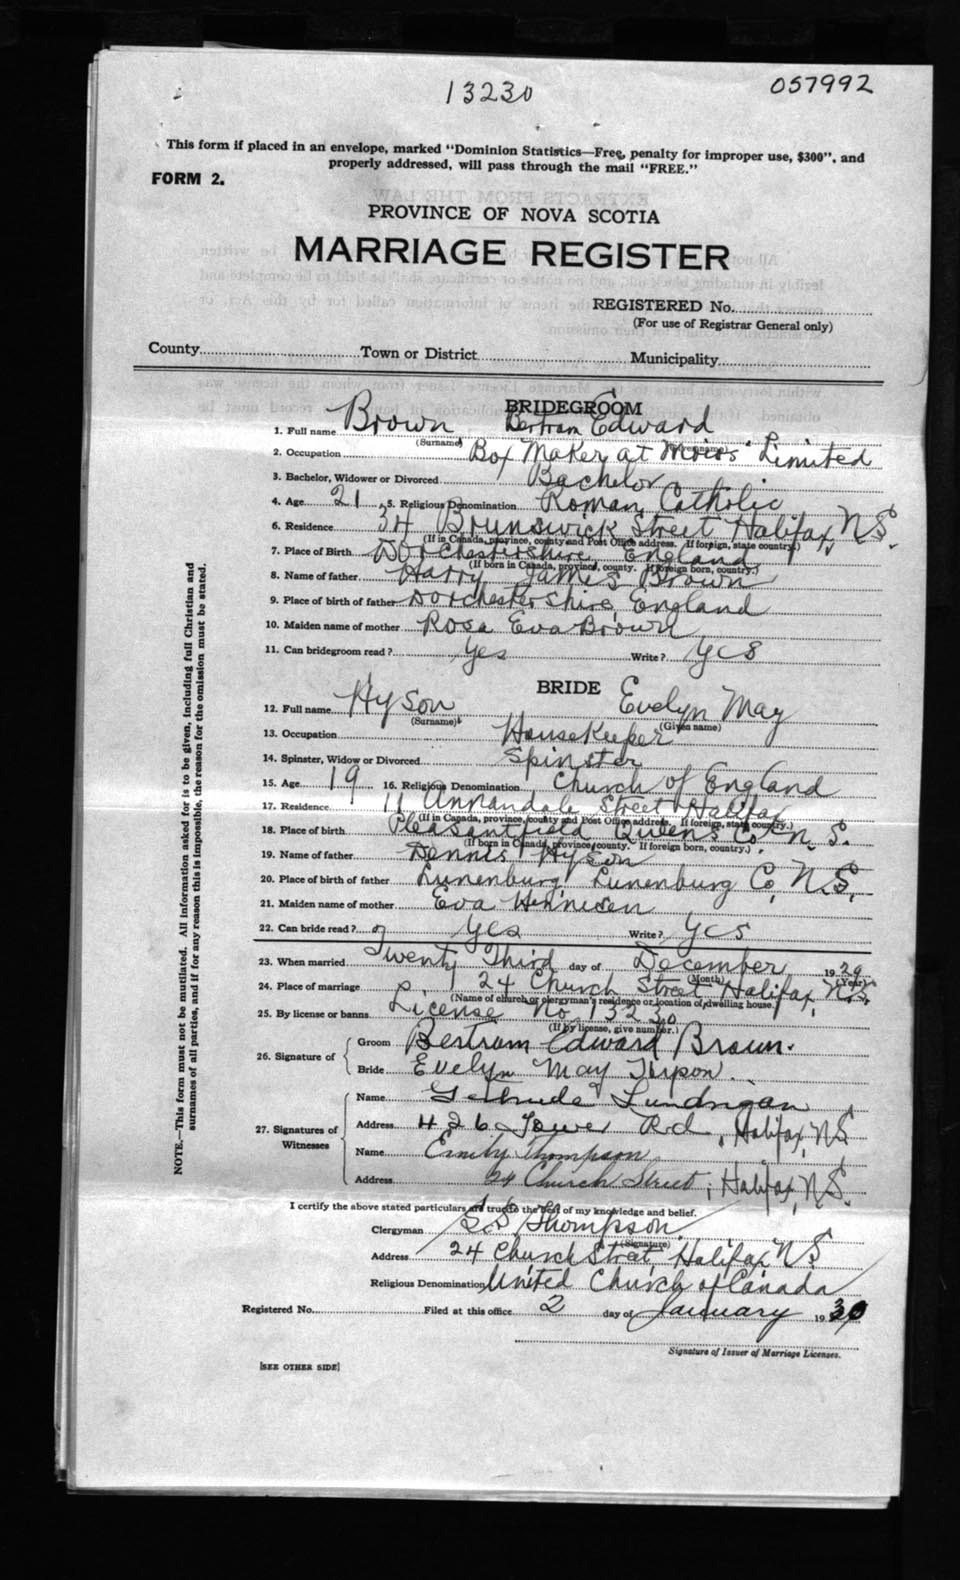 13230
057992
This form if placed in an envelope, marked "Dominion Statistics—Free, penalty for improper use, $300", and
properly addressed, will pass through the mail "FREE."
FORM 2.
PROVINCE OF NOVA SCOTIA
MARRIAGE REGISTER
REGISTERED No.
(For use of Registrar General only)
County Town or District Municipality
BRIDEGROOM
1. Full name Brown Bertram Edward
(Surname)
2. Occupation Box Maker at Moirs' Limited
3. Bachelor, Widower or Divorced Bachelor
4. Age 21 5. Religious Denomination Roman Catholic
6. Residence 34 Brunswick Street Halifax, N.S.
(If in Canada, province, county and Post Office address. If foreign, state country.)
7. Place of Birth Dorchestershire England
(If born in Canada, province, county. If foreign born, country.)
8. Name of father Harry James Brown
9. Place of birth of father Dorchestershire, England
10. Maiden name of mother Rosa Eva Brown
11. Can bridegroom read? Yes Write? Yes
BRIDE
12. Full name Hyson Evelyn May
(Surname) (Given name)
13. Occupation Housekeeper
14. Spinster, Widow or Divorced Spinster
15. Age 19 16. Religious Denomination Church of England
17. Residence 11 Annandale Street Halifax
(If in Canada, province, county and Post Office address. If foreign, state country.)
18. Place of birth Pleasantfield Queens Co. N.S.
(If born in Canada, province, county. If foreign born, country.)
19. Name of father Dennis Hyson
20. Place of birth of father Lunenburg, Lunenburg Co, N.S.
21. Maiden name of mother Eva
22. Can bride read? Yes Write? Yes
23. When married Twenty Third day of December 1929
(Month) (Year)
24. Place of marriage 24 Church Street Halifax, N.S.
(Name of church or clergyman's residence or location of dwelling house.)
25. By license or banns License No. 13230
(If by license, give number.)
26. Signature of
Groom Bertram Edward Brown.
Bride Evelyn May Hyson
27. Signatures of
Witnesses
Name Gertrude Lundrigan
Address 426 Tower Rd, Halifax, N.S.
Name Emily Thompson
Address 24 Church Street, Halifax, N.S.
I certify the above stated particulars are true to the best of my knowledge and belief.
Clergyman Thompson
(Signature)
Address 24 Church Street Halifax N.S.
Religious Denomination United Church of Canada
Registered No. Filed at this office 2 day of January 1930
Signature of Issuer of Marriage Licenses.
[SEE OTHER SIDE]
NOTE.—This form must not be mutilated. All information asked for is to be given, including full Christian and
surnames of all parties, and if for any reason this is impossible, the reason for the omission must be stated.